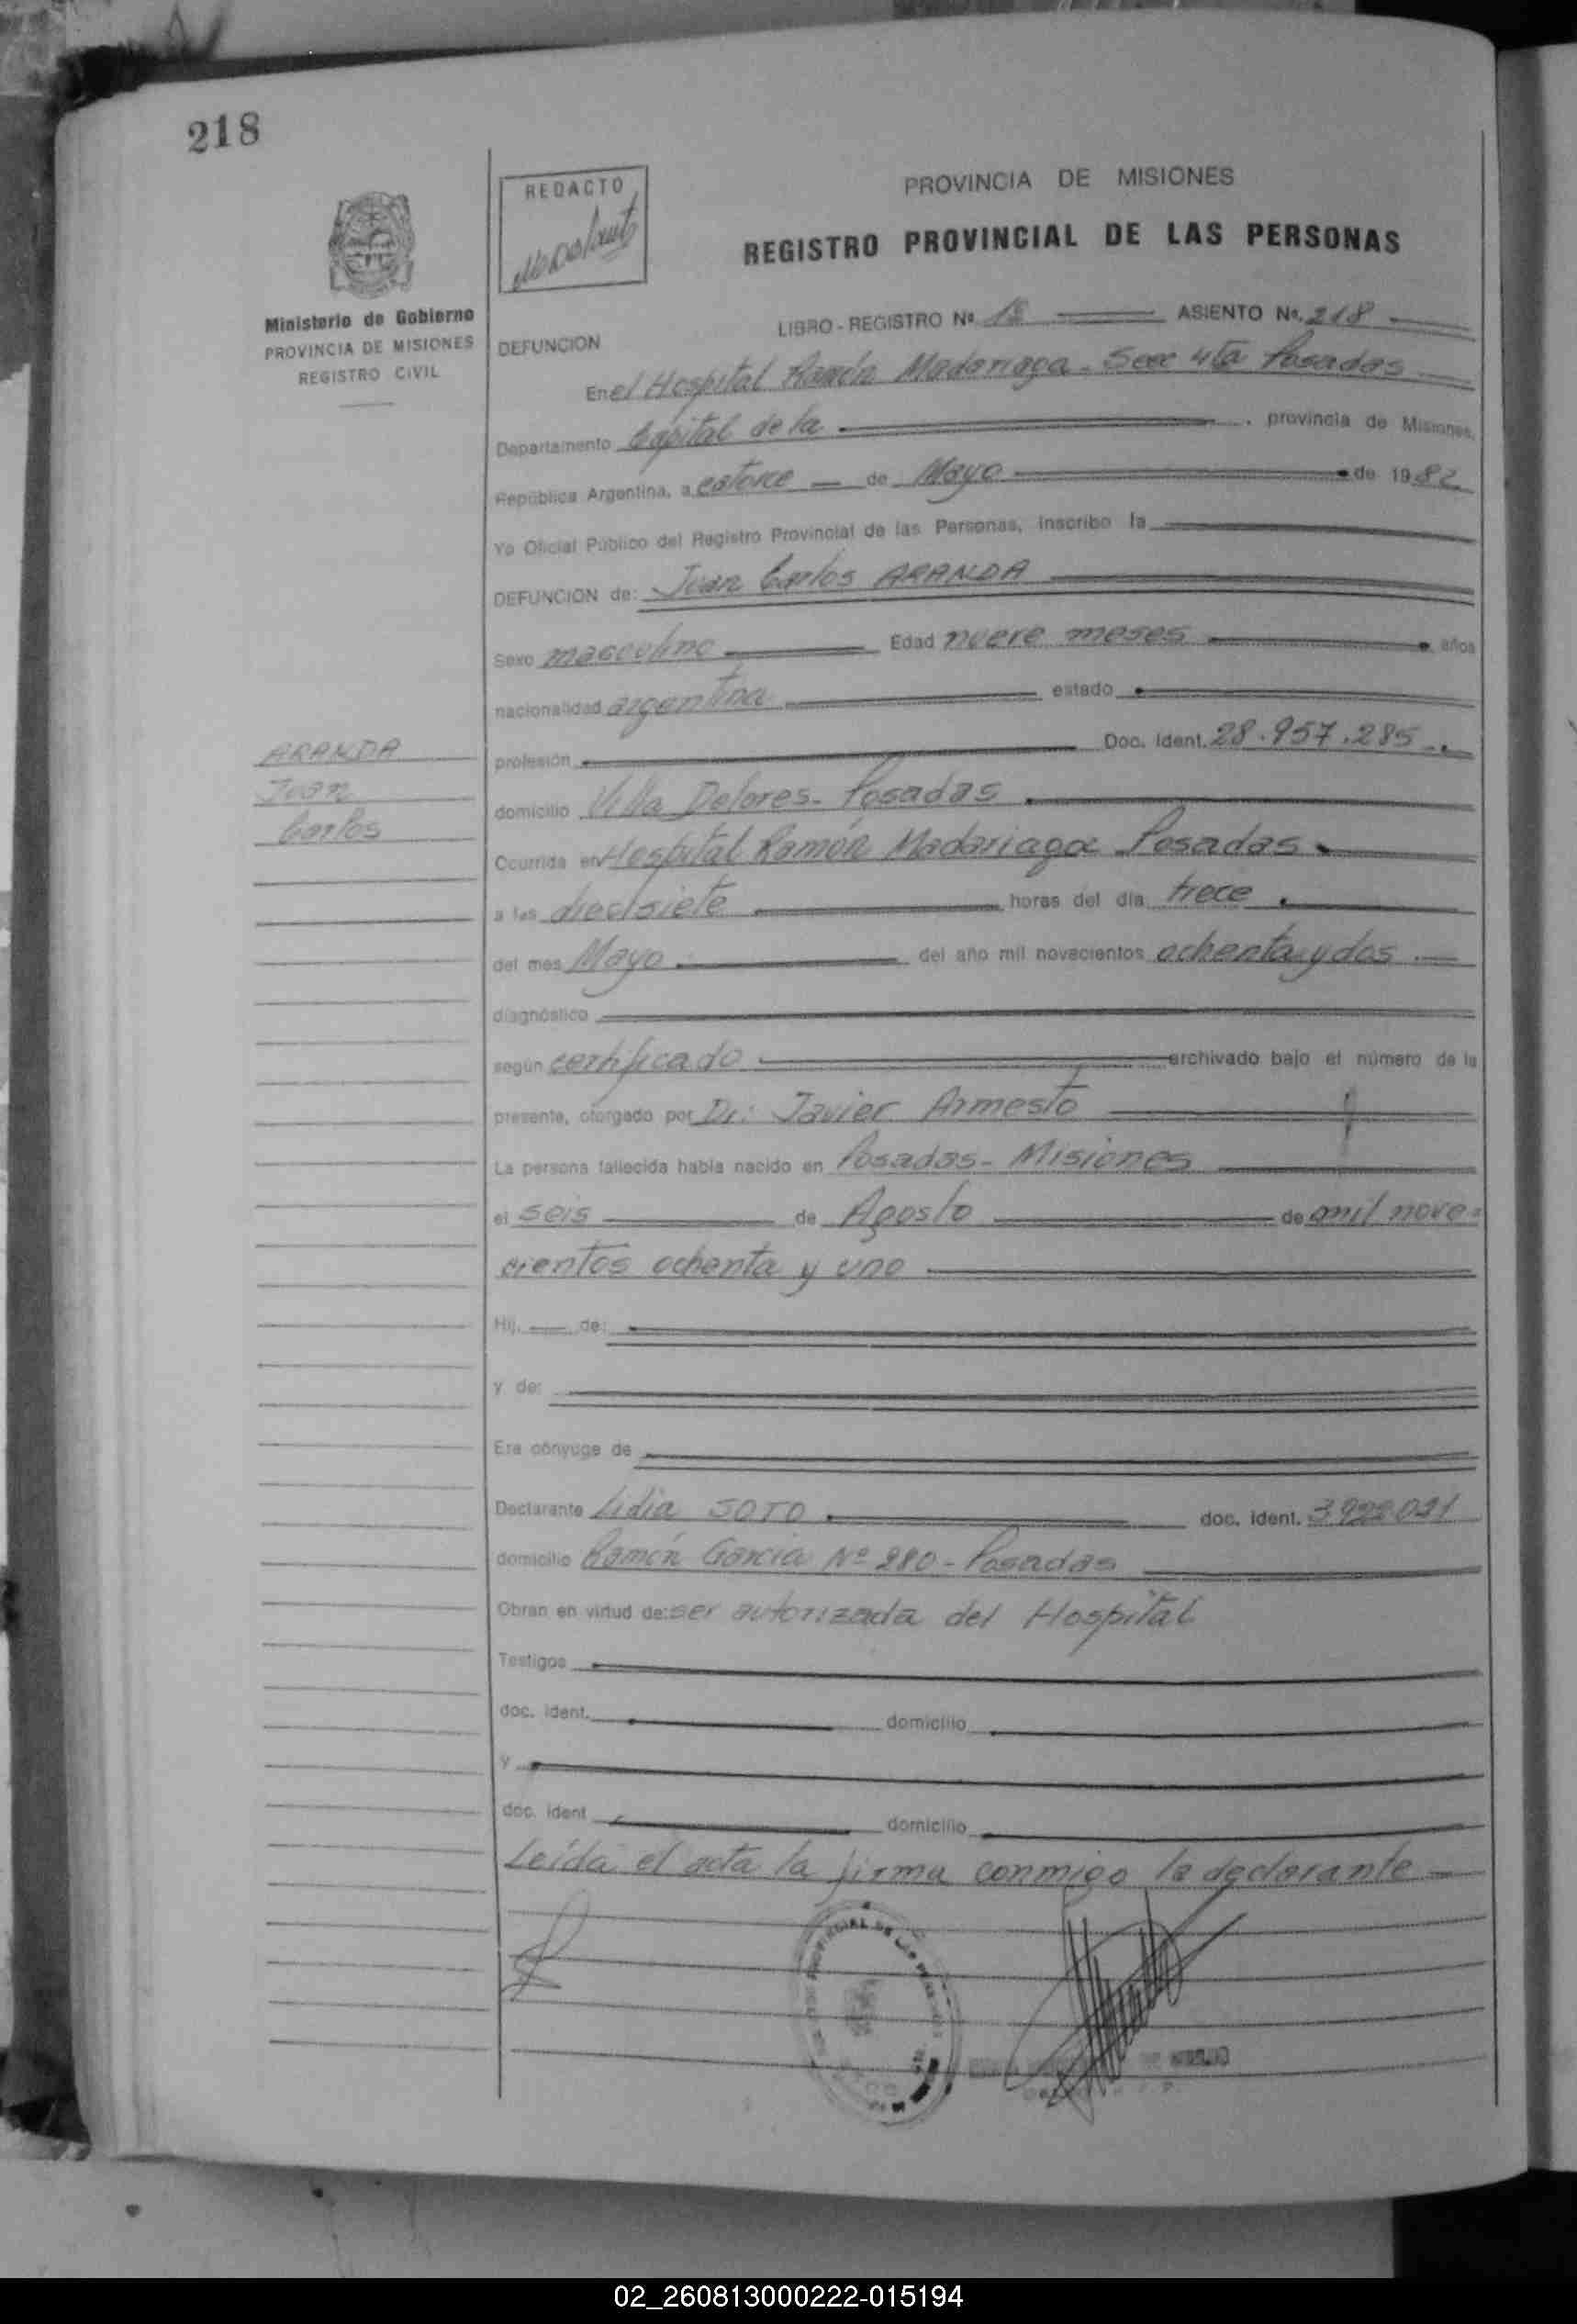 218
REDACTO
PROVINCIA DE MISIONES
REGISTRO PROVINCIAL DE LAS PERSONAS
Ministerio de Gobierno
PROVINCIA DE MISIONES
REGISTRO CIVIL
LIBRO - REGISTRO Nº ASIENTO Nº. 218
DEFUNCION
En el Hospital Ramón Madariaga - Secc 4ta Posadas
Departamento Capital de la , provincia de Misiones,
República Argentina, a catorce de Mayo de 1982
Yo Oficial Público del Registro Provincial de las Personas, inscribo la
DEFUNCION de: Juan Carlos ARANDA
Sexo masculino Edad nueve meses años
nacionalidad argentina estado
ARANDA
Juan
Carlos
profesión Doc. Ident. 28.957.285
domicilio Villa Dolores - Posadas
Ocurrida en Hospital Ramón Madariaga Posadas
a las diecisiete horas del día trece
del mes Mayo del año mil novecientos ochenta y dos
diagnóstico
según certificado archivado bajo el número de la
presente, otorgado por Dr: Javier Armesto
La persona fallecida había nacido en Posadas - Misiones
el seis de Agosto de mil nove-
cientos ochenta y uno
Hij. de:
y de:
Era cónyuge de
Declarante Lidia SOTO doc. ident.
domicilio Ramón García Nº 280 - Posadas
Obran en virtud de: ser autorizada del Hospital
Testigos
doc. ident. domicilio
y
doc. ident domicilio
Leída el acta la firma conmigo la declarante
02_260813000222-015194